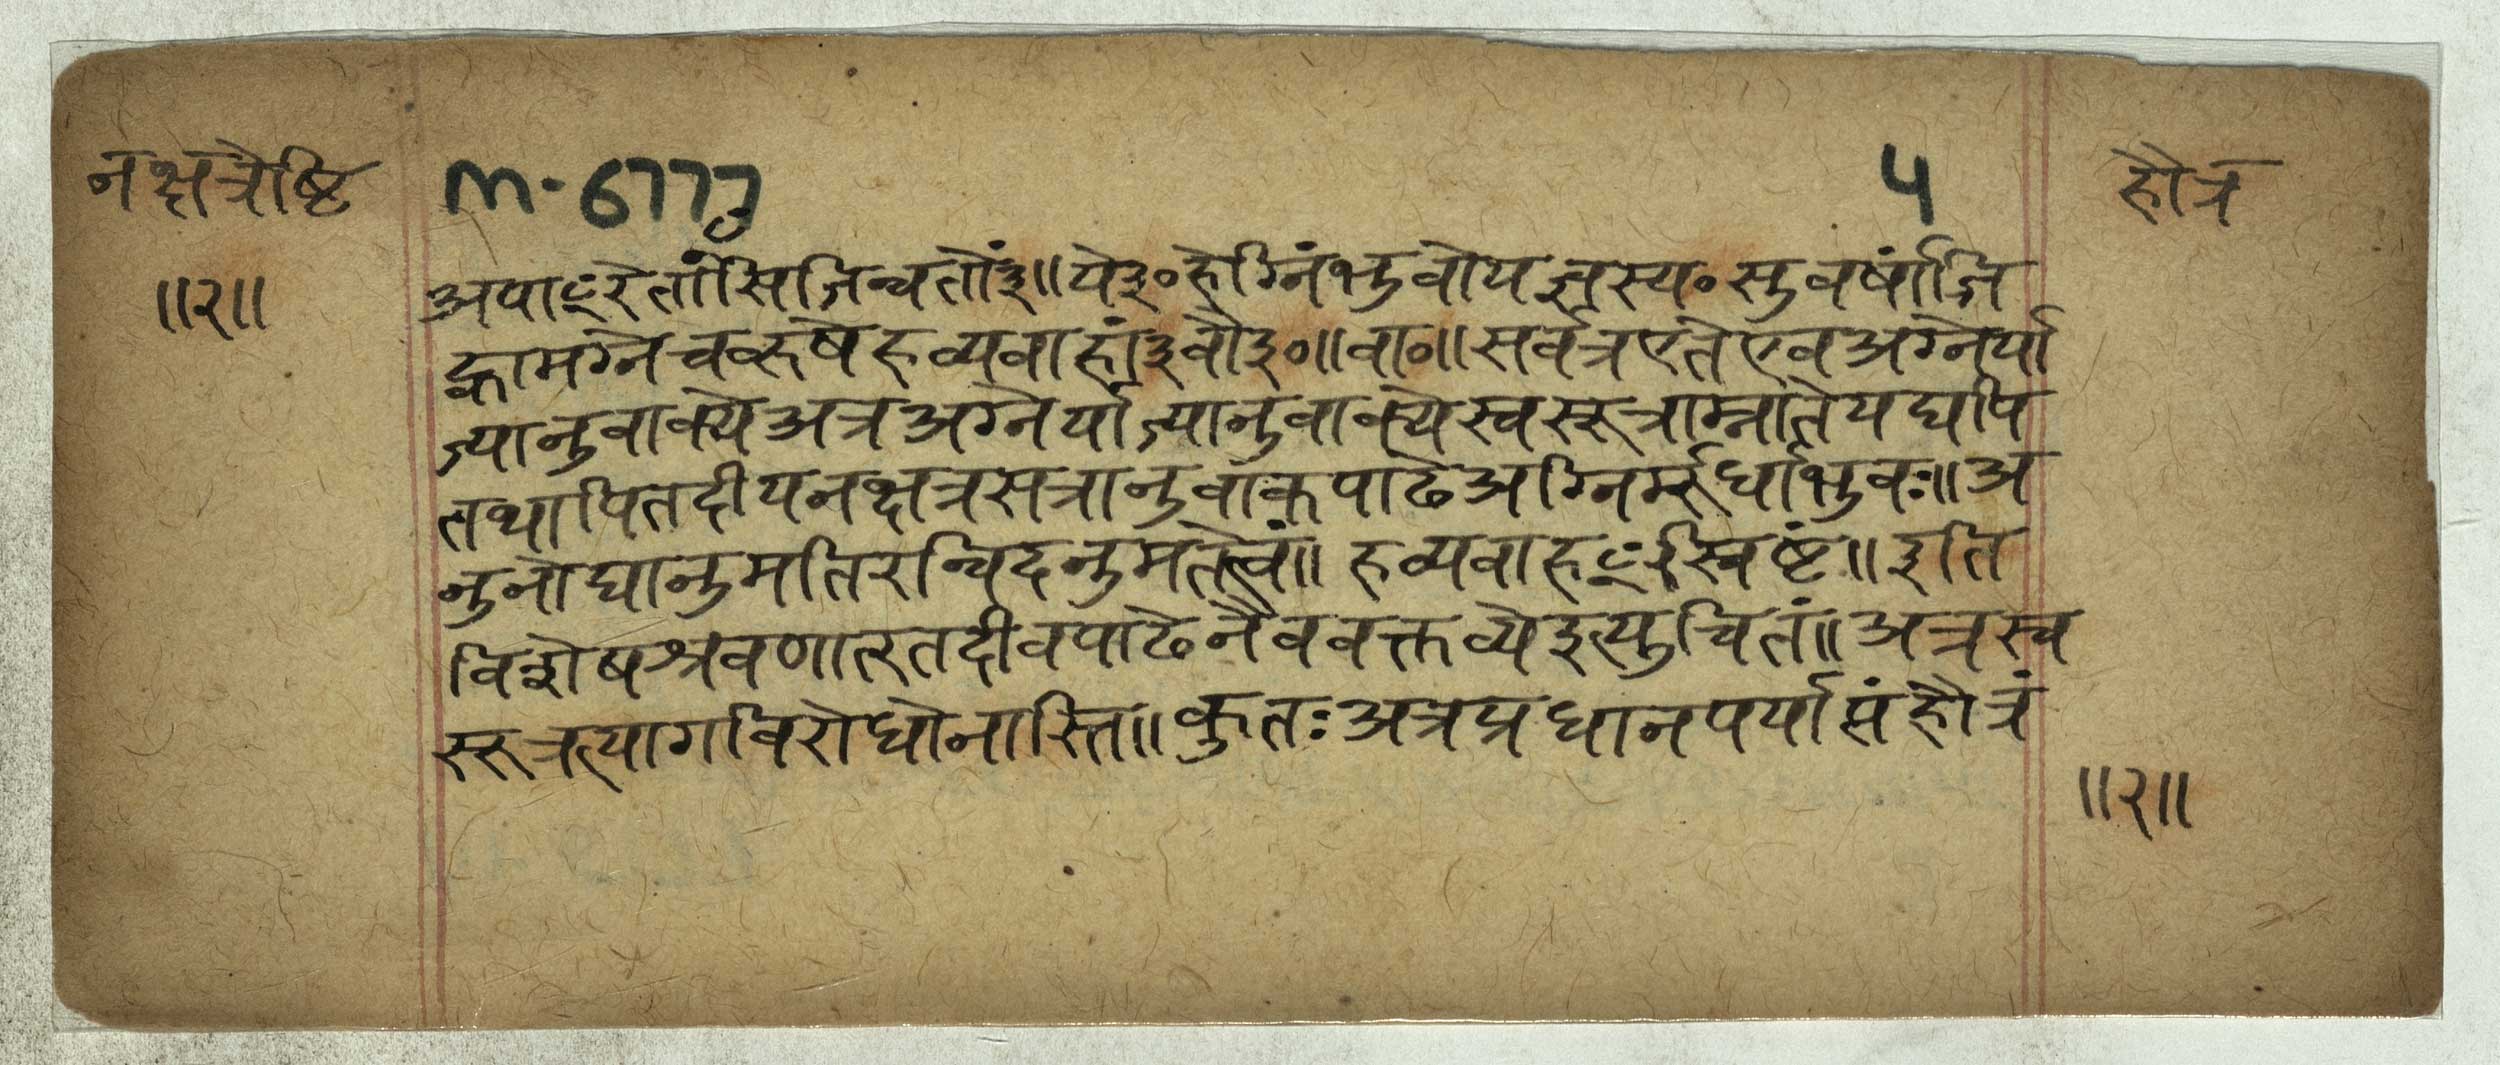 नक्षत्रेष्टि
M-6777
५
हौत्र
॥२॥
अपाꣳरेताꣳसिजिन्वतो३ं॥ये३०हेग्निंभुवोयज्ञस्य०सुवर्षांजि
ह्वामग्नेचकृषेहव्यवाहां३वौ३०॥वा०॥सर्वत्रएतेएवअग्नेर्या
ज्यानुवाक्येअत्रअग्नेर्याज्यानुवाक्येस्वसूत्राम्नातेयद्यपि
तथापितदीयनक्षत्रसत्रानुवाकपाठेअग्निर्मूर्धाभुवः॥अ
नुनोद्यानुमतिरन्विदनुमतेत्वं॥हव्यवाहꣳस्विष्टं॥इति
विशेषश्रवणात्तदीवपाठेनैववक्तव्येइत्युचितं॥अत्रस्व
सूत्रत्यागविरोधोनास्ति॥कुतःअत्रप्रधानपर्याप्तंहौत्रं
॥२॥